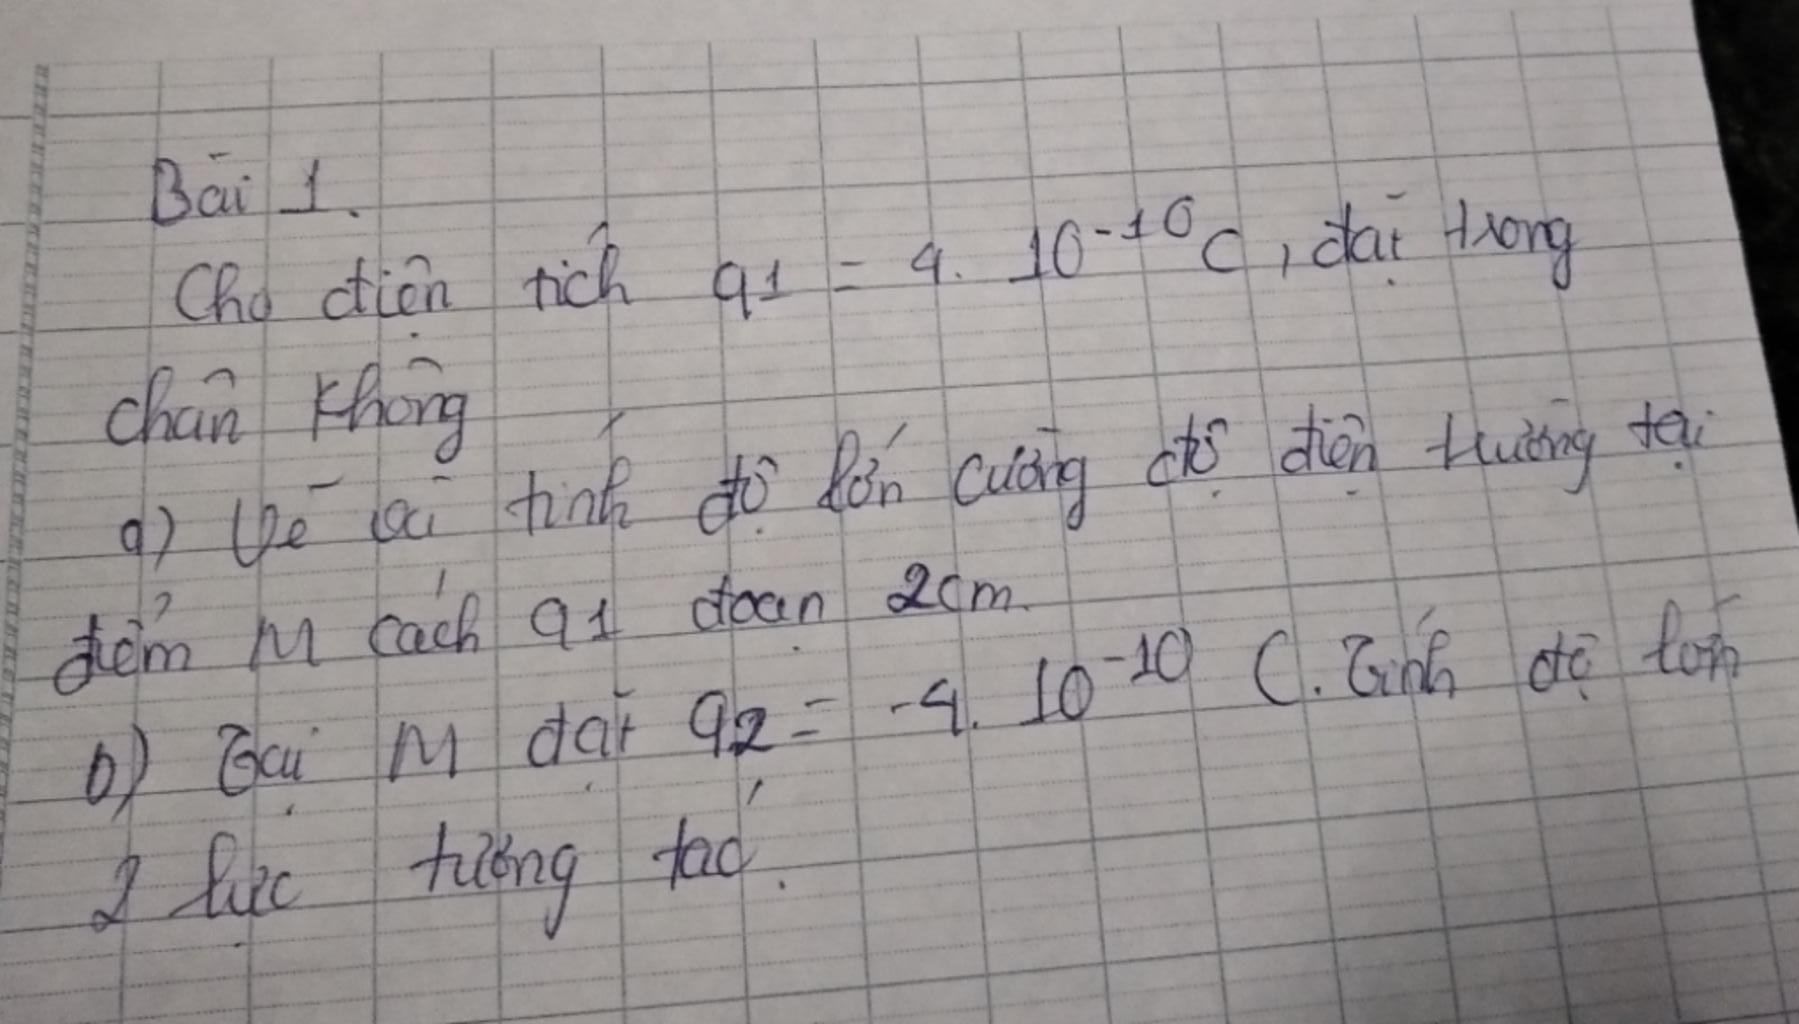 Bài 1.
Cho điện tích q1 = 4. 10^-10 C, đặt trong
chân không
a) Vẽ và tính độ lớn cường độ điện trường tại
điểm M cách q1 đoạn 2cm.
b) Tại M đặt q2 = -4. 10^-10 C. Tính độ lớn
2 lực tương tác.